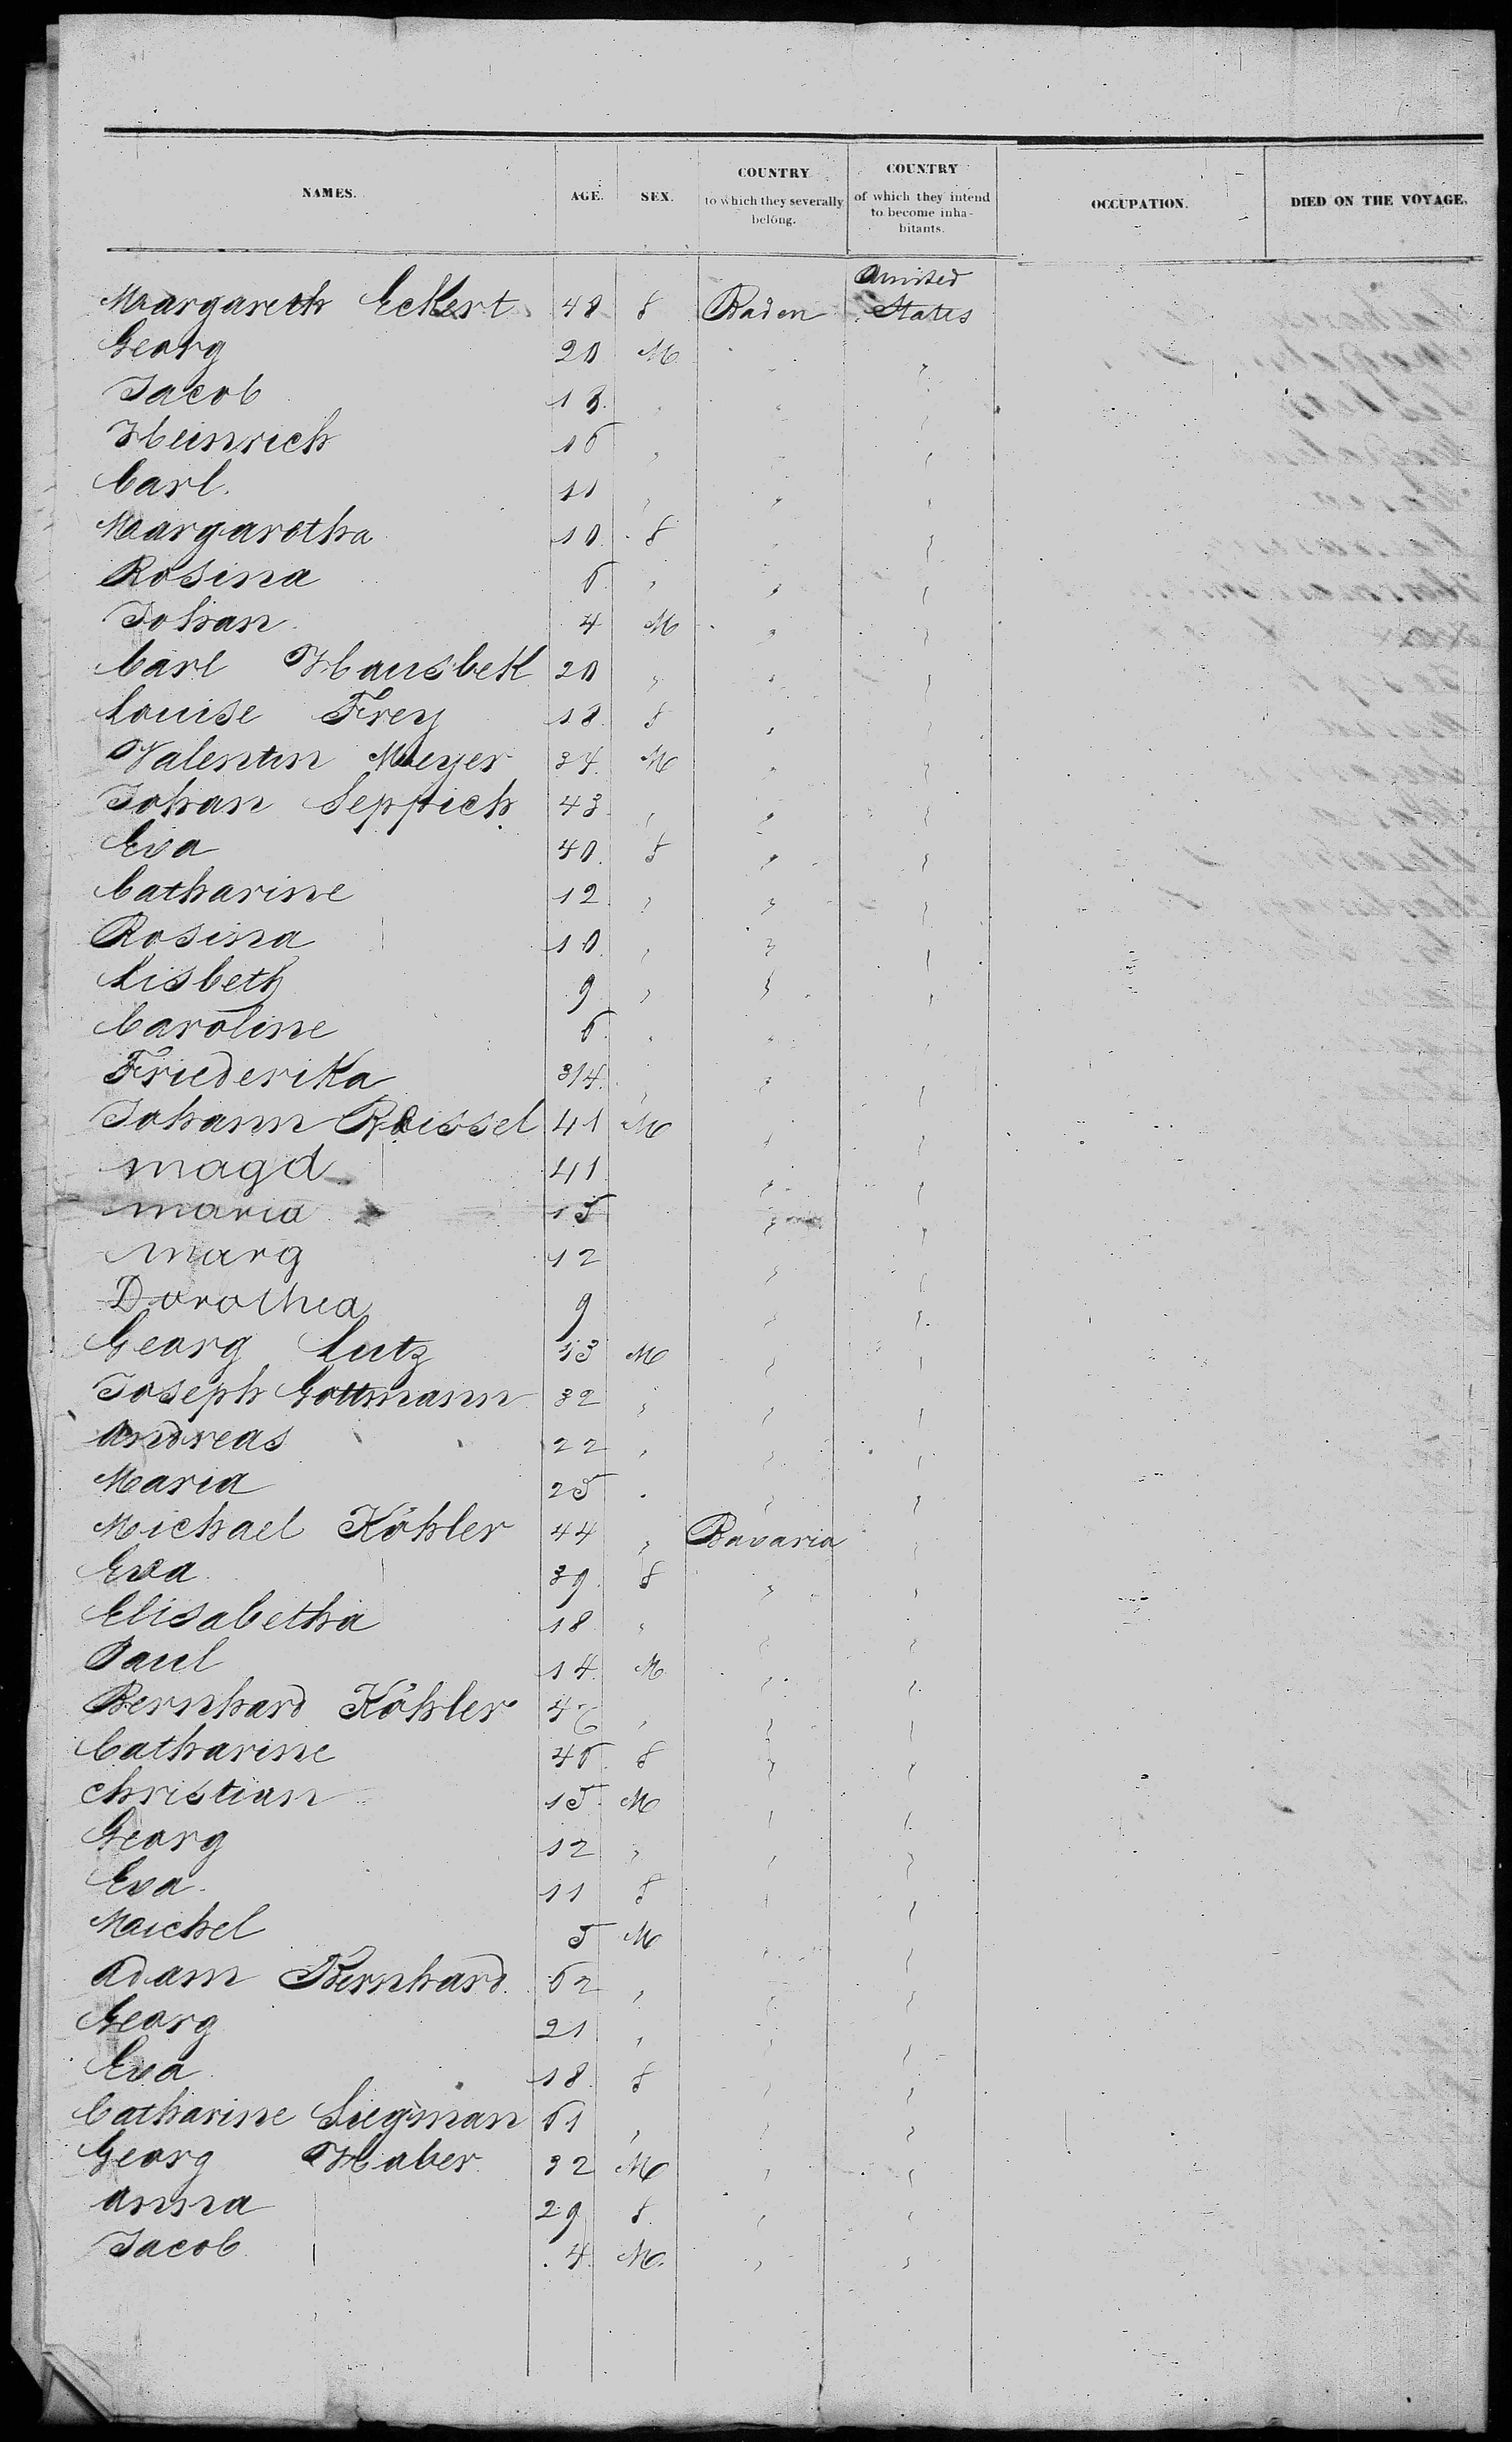 NAMES. AGE. SEX. COUNTRY to which they severally belong. COUNTRY of which they intend to become inhabitants. OCCUPATION. DIED ON THE VOYAGE.
Margareth Eckert 48 f Baden United States
Georg 20 M " "
Jacob 18 " " "
Heinrich 16 " " "
Carl. 11 " " "
Margaretha 10 f " "
Rosina 6 " " "
Johan 4 M " "
Carl Hausbek 20 " " "
Louise Frey 18 f " "
Valentin Meyer 34 M " "
Johan Seppich 43 " " "
Eva 40 f " "
Catharine 12 " " "
Rosina 10 " " "
Lisbeth 9 " " "
Caroline 6 " " "
Friederika 3/4 " " "
Johann Reissel 41 M " "
magd 41 " "
maria 15 " "
marg 12 " "
Dorothea 9 " "
Georg Lutz 13 M " "
Joseph Gottmann 32 " " "
Andreas 22 " " "
Maria 25 " " "
Michael Köhler 44 " Bavaria "
Eva 39 f " "
Elisabetha 18 " " "
Paul 14 M " "
Bernhard Köhler 46 " " "
Catharine 46 f " "
Christian 15 M " "
Georg 12 " " "
Eva 11 f " "
Maichel 5 M " "
Adam Bernhard. 62 " " "
Georg 21 " " "
Eva 18 f " "
Catharine Siegman 61 " " "
Georg Haber 32 M " "
Anna 29 f " "
Jacob 4 M. " "